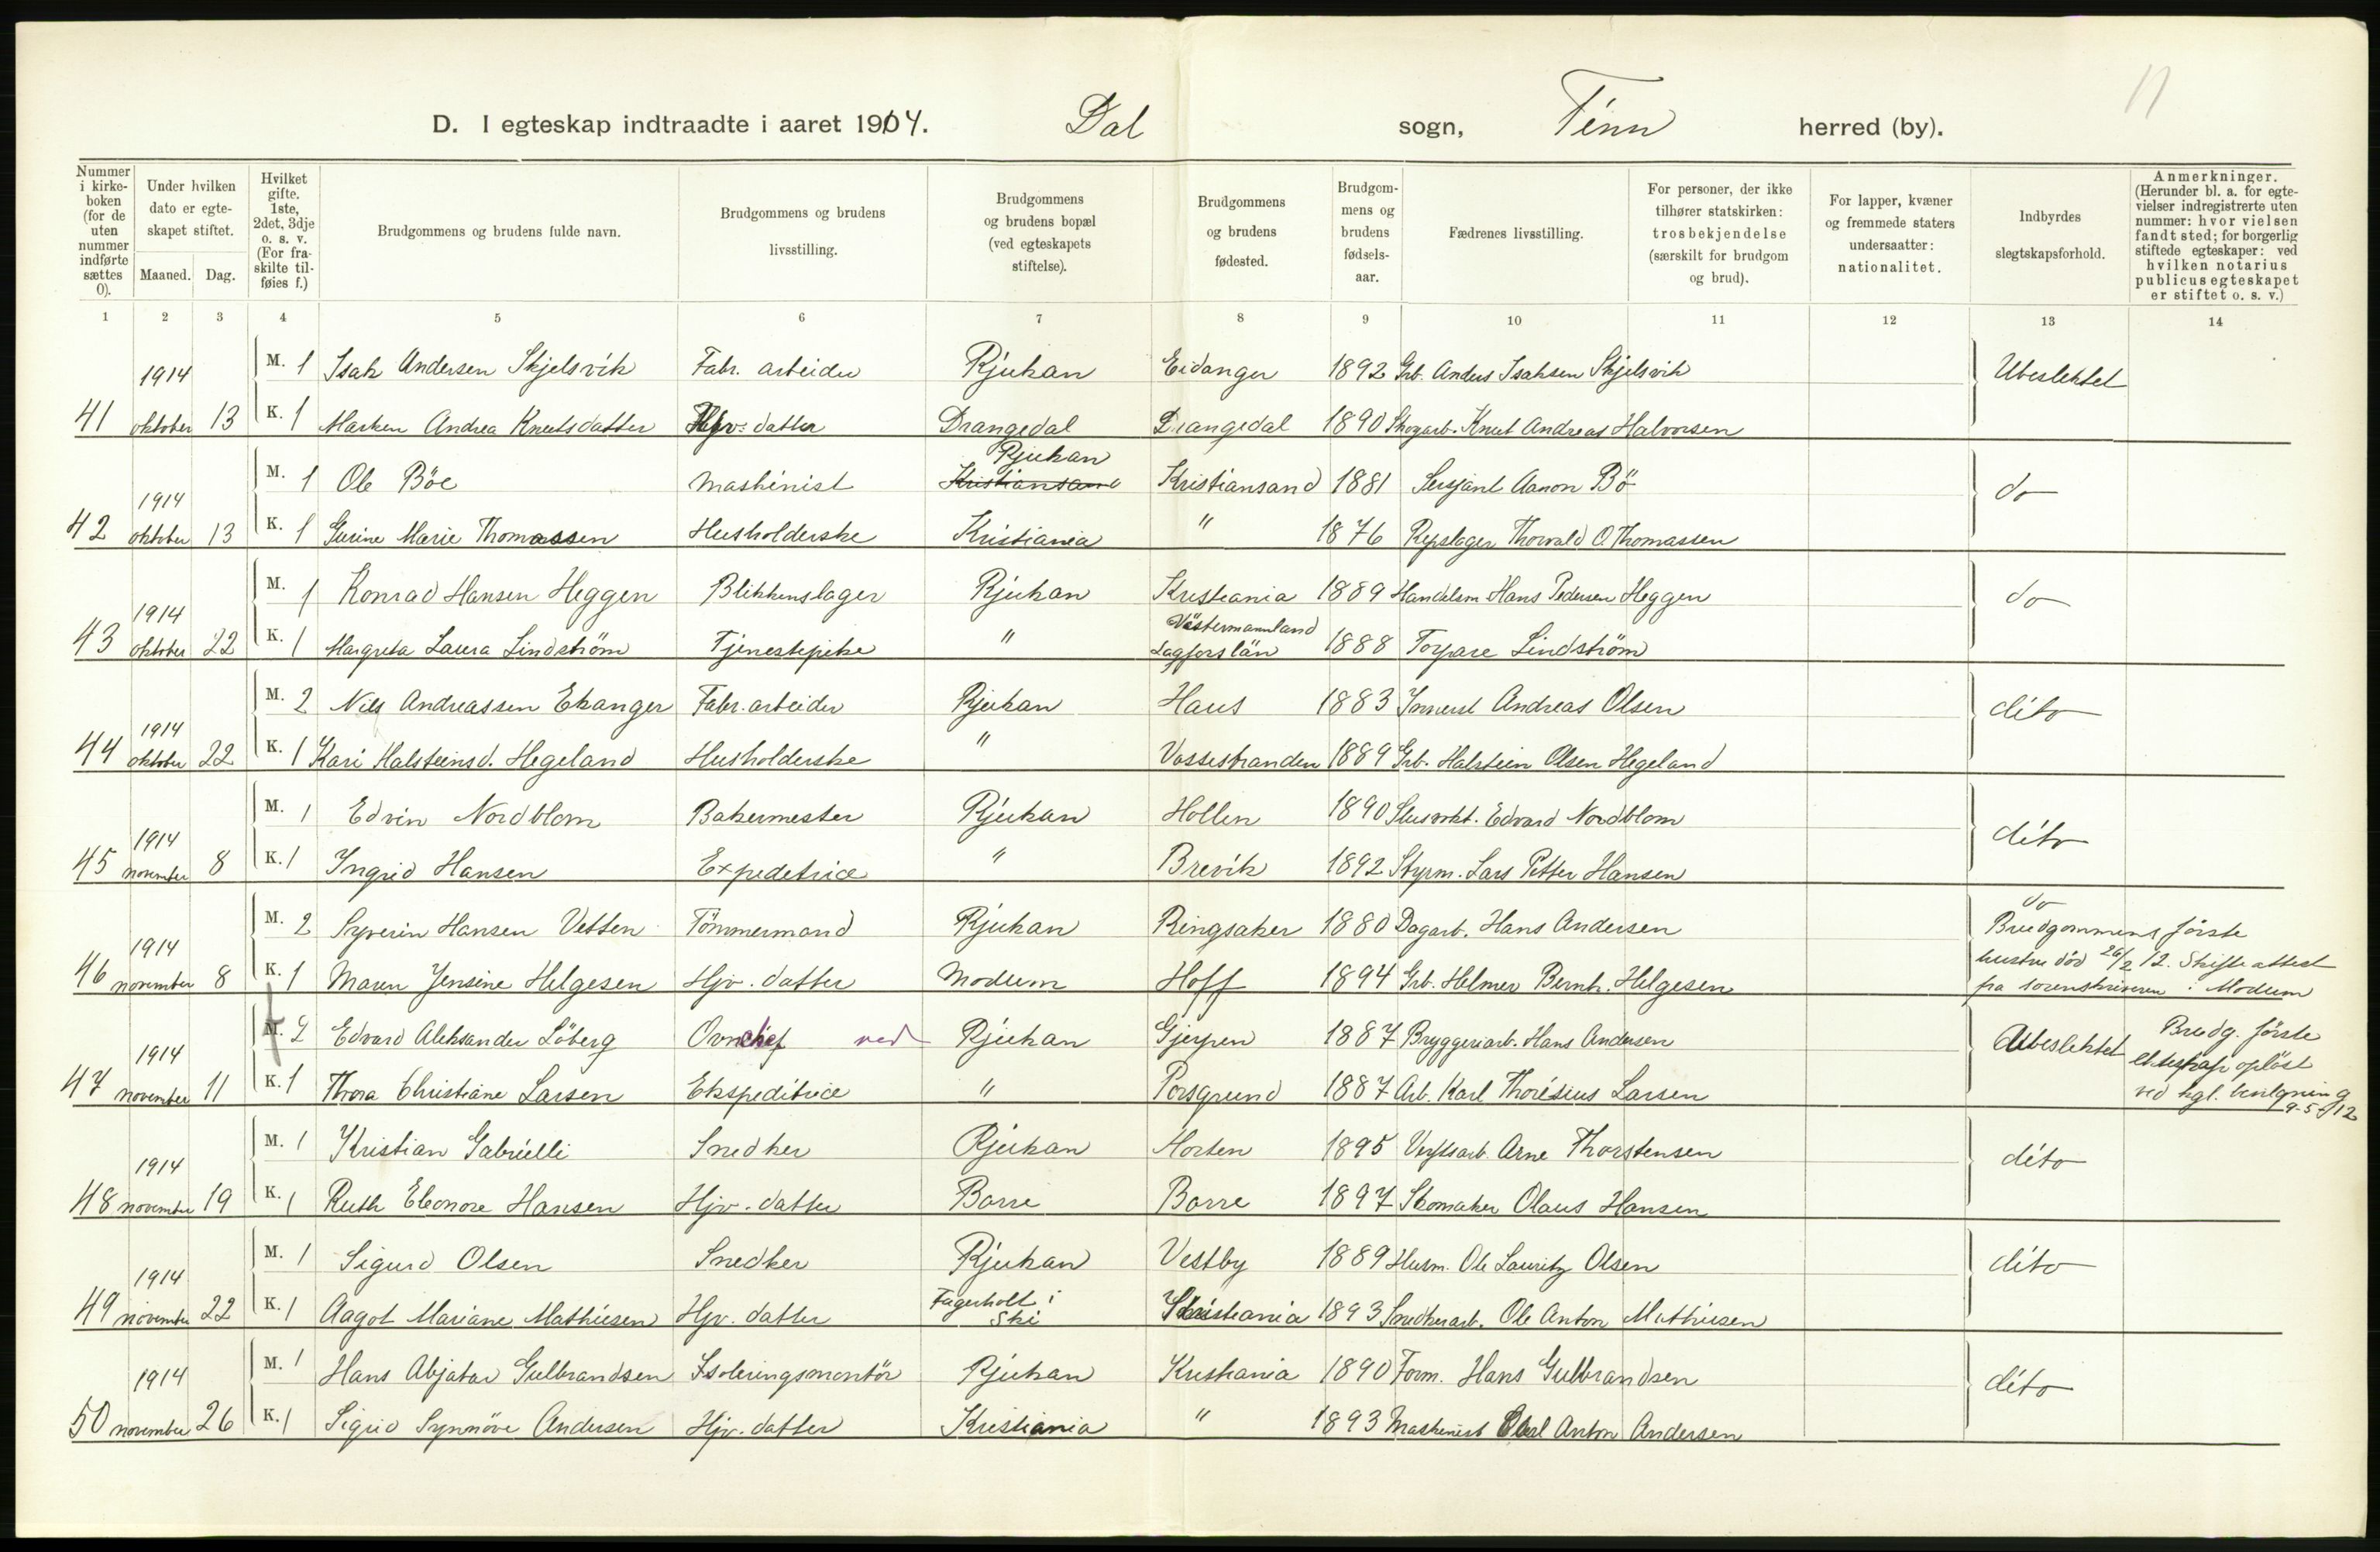 11
D. I egteskap indtraadte i aaret 1914. Dal sogn, Tinn herred (by).
Nummer i kirkeboken (for de uten nummer indførte sættes 0).
Under hvilken dato er egteskapet stiftet.
Maaned. Dag.
Hvilket gifte. 1ste, 2det, 3dje o. s. v. (For fraskilte tilføies f.)
Brudgommens og brudens fulde navn.
Brudgommens og brudens livsstilling.
Brudgommens og brudens bopæl (ved egteskapets stiftelse).
Brudgommens og brudens fødested.
Brudgommens og brudens fødselsaar.
Fædrenes livsstilling.
For personer, der ikke tilhører statskirken: trosbekjendelse (særskilt for brudgom og brud).
For lapper, kvæner og fremmede staters undersaatter: nationalitet.
Indbyrdes slegtskapsforhold.
Anmerkninger. (Herunder bl. a. for egtevielser indregistrerte uten nummer: hvor vielsen fandt sted; for borgerlig stiftede egteskaper: ved hvilken notarius publicus egteskapet er stiftet o. s. v.)
1 2 3 4 5 6 7 8 9 10 11 12 13 14
1914 M. 1 Isak Andersen Skjelsvik Fabr. arbeider Rjukan Eidanger 1892 Grb. Anders Isaksen Skjelsvik Ubeslektet
41 oktober 13 K. 1 Marken Andrea Knutsdatter Hjv. datter Drangedal Drangedal 1890 Skogarb. Knut Andreas Halvorsen
1914 M. 1 Ole Böe Maskinist Rjukan Kristiansand Kristiansand 1881 Sersjant Aanon Bö do
42 oktober 13 K. 1 Gurine Marie Thomassen Husholderske Kristiania " 1876 Repslager Thorvald O. Thomassen
1914 M. 1 Konrad Hansen Heggen Blikkenslager Rjukan Kristiania 1889 Handelsm Hans Pedersen Heggen do
43 oktober 22 K. 1 Margreta Laura Lindström Tjenestepike " Västermannland Lagforslän 1888 Torpare Lindström
1914 M. 2 Nils Andreassen Ekanger Fabr. arbeider Rjukan Haus 1883 Inderst Andreas Olsen dito
44 oktober 22 K. 1 Kari Halsteinsd. Hegeland Husholderske " Vossestranden 1889 Grb. Halstein Olsen Hegeland
1914 M. 1 Edvin Nordblom Bakermester Rjukan Hollen 1890 Slusevokt. Edvard Nordblom dito
45 november 8 K. 1 Ingrid Hansen Expeditrice " Brevik 1892 Styrm. Lars Petter Hansen
1914 M. 2 Syverin Hansen Vetten Tömmermand Rjukan Ringsaker 1880 Dagarb. Hans Andersen do Brudgommens förste
46 november 8 K. 1 Maren Jensine Helgesen Hjv. datter Modum Hoff 1894 Grb. Helmer Bernh. Helgesen hustru död 26/2 12. Skifteattest fra sorenskriveren i Modum
1914 M. 2 Edvard Aleksander Löberg Ovnchef ved Rjukan Gjerpen 1887 Bryggeriarb. Hans Andersen Ubeslektet Brudg. förste
47 november 11 K. 1 Thora Christiane Larsen Ekspeditrice " Porsgrund 1887 Arb. Karl Thorésius Larsen ekteskap oplöst ved kgl. bevilgning 9-5-12
1914 M. 1 Kristian Gabrielli Snedker Rjukan Horten 1895 Verftsarb. Arne Thorstensen dito
48 november 19 K. 1 Ruth Eleonore Hansen Hjv. datter Borre Borre 1897 Skomaker Olaus Hansen
1914 M. 1 Sigurd Olsen Snedker Rjukan Vestby 1889 Husm. Ole Lauritz Olsen dito
49 november 22 K. 1 Aagot Mariane Mathiesen Hjv. datter Fagerholt i Ski Kristiania 1893 Snedkerarb. Ole Anton Mathiesen
1914 M. 1 Hans Abjatar Gulbrandsen Isoleringsmontör Rjukan Kristiania 1890 Form. Hans Gulbrandsen dito
50 november 26 K. 1 Sigrid Synnöve Andersen Hjv. datter Kristiania " 1893 Maskinist Carl Anton Andersen